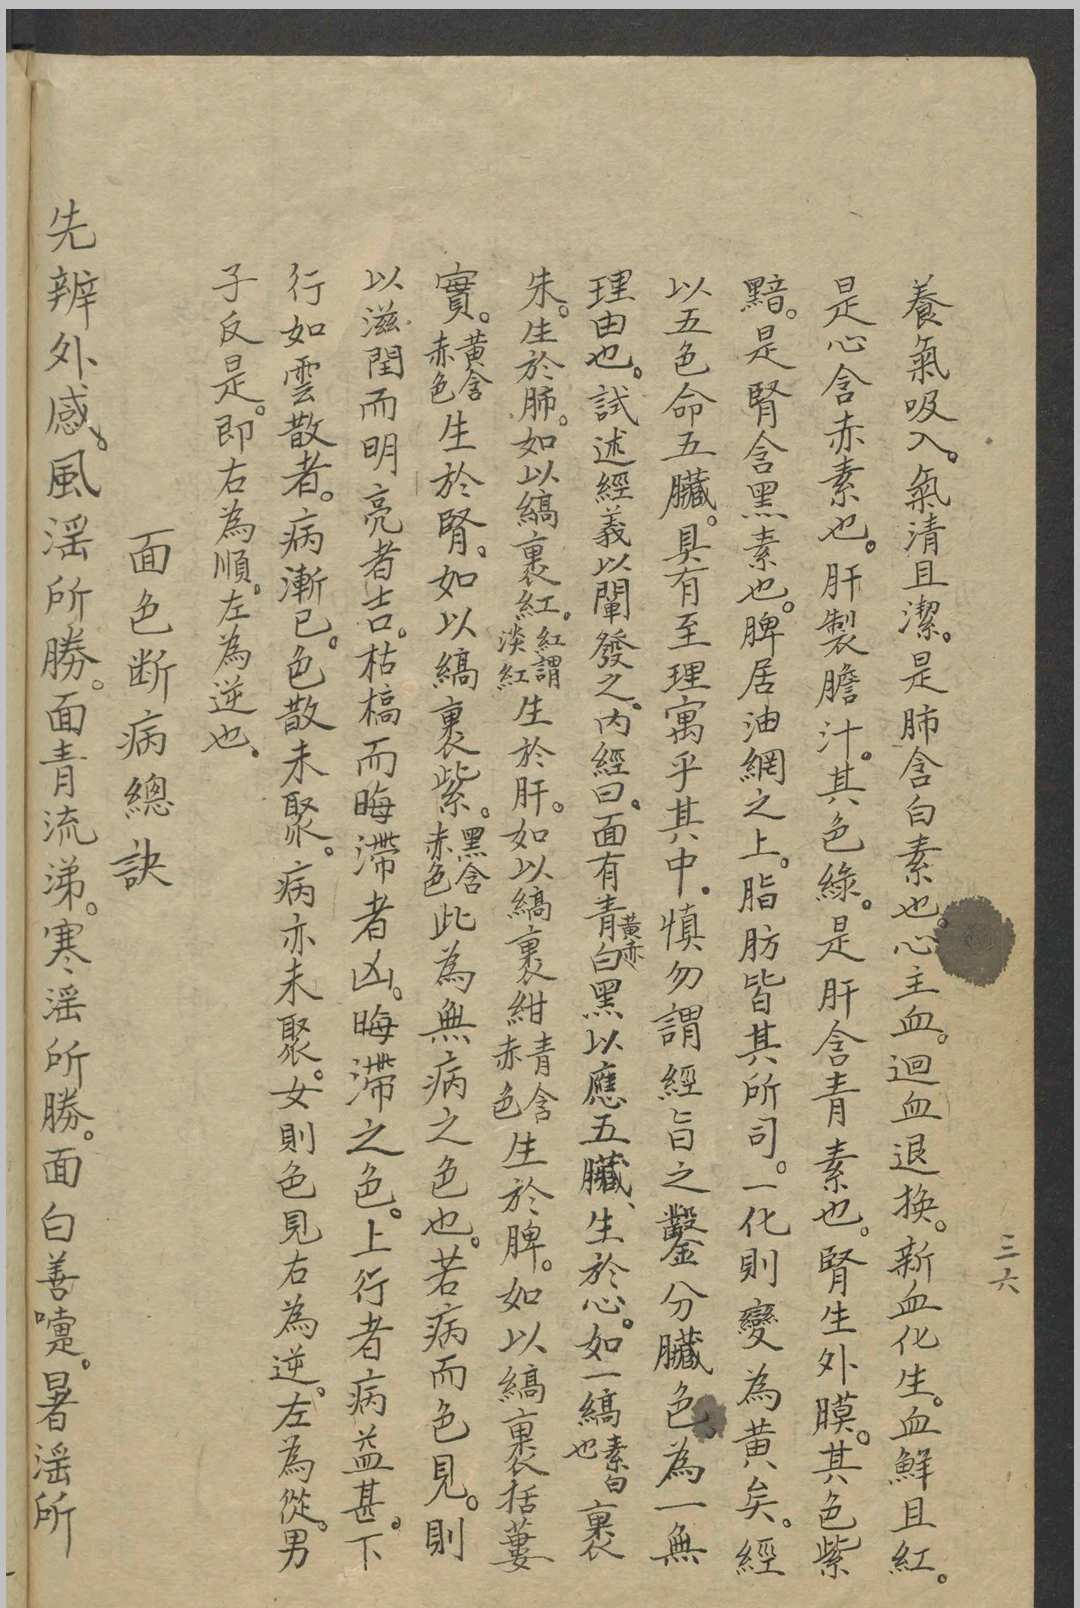 養氣吸入。氣清且潔。是肺含白素也。心主血。迴血退換。新血化生。血鮮且紅。
是心含赤素也。肝製膽汁。其色綠。是肝含青素也。腎生外膜。其色紫
黯。是腎含黑素也。脾居油網之上。脂肪皆其所司。一化則變為黃矣。經
以五色命五臟。具有至理寓乎其中。慎勿謂經旨之鑿分臟色為一無
理由也。試述經義以闡發之。內經曰。面有青黃赤白黑以應五臟、生於心。如一縞素白也裹
朱。生於肺。如以縞裹紅。紅謂淡紅生於肝。如以縞裹紺青含赤色生於脾。如以縞裹括蔞
實。黃含赤色生於腎。如以縞裹紫。黑含赤色此為無病之色也。若病而色見。則
以滋閏而明亮者吉。枯槁而晦滯者凶。晦滯之色。上行者病益甚。下
行如雲散者。病漸已。色散未聚。病亦未聚。女則色見右為逆。左為從。男
子反是。即右為順。左為逆也。
面色断病總訣
先辨外感。風淫所勝。面青流涕。寒淫所勝。面白善嚏。暑淫所
三六